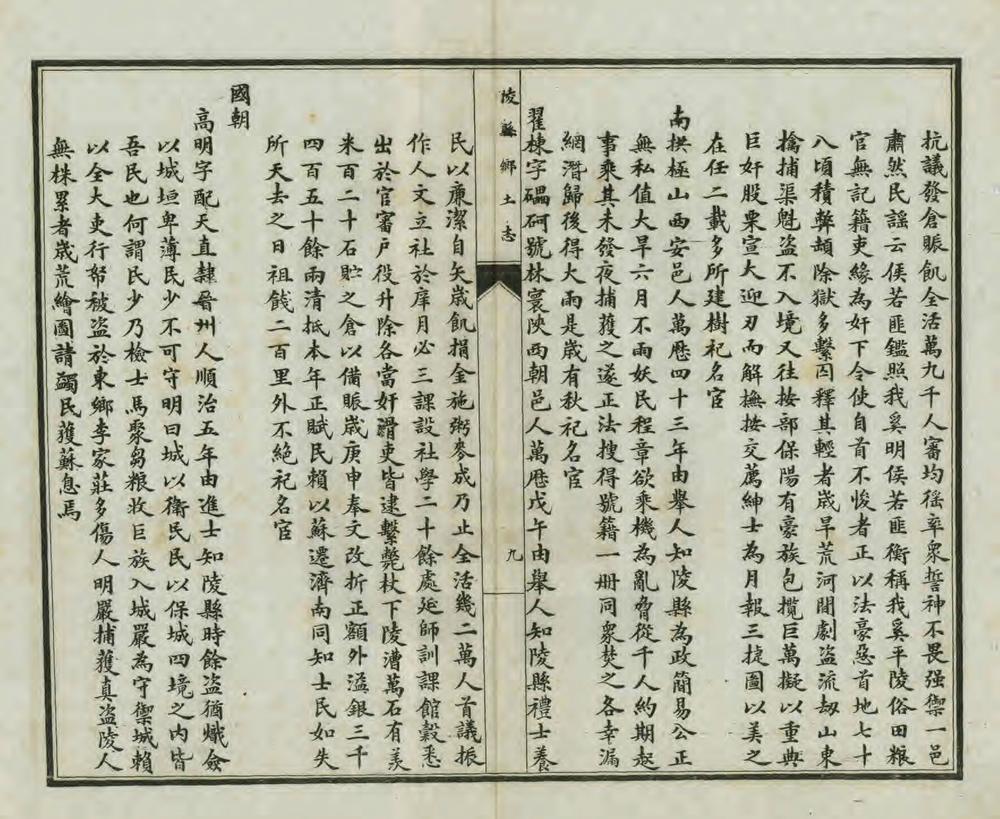 抗議發倉賑飢全活萬九千人審均徭率衆誓神不畏强禦一邑
肅然民謡云侯若匪鑑照我奚明侯若匪衡稱我奚平陵俗田粮
官無記籍吏緣為奸下令使自首不悛者正以法豪惡首地七十
八頃積弊頓除獄多繫囚釋其輕者歲旱荒河間劇盗流刼山東
擒捕渠魁盗不入境又往按部保陽有豪族包攬巨萬擬以重典
巨奸股栗宣大迎刃而解撫按交薦紳士為月報三捷圖以美之
在任二載多所建樹祀名宦
南拱極山西安邑人萬歷四十三年由舉人知陵縣為政簡易公正
無私值大旱六月不雨妖民程章欲乘機為亂脅從千人約期起
事乘其未發夜捕獲之遂正法搜得號籍一册同衆焚之各幸漏
網潛歸後得大雨是歲有秋祀名宦
翟棟字礧砢號林寰陜西朝邑人萬歷戊午由舉人知陵縣禮士養
陵縣鄉土志
九
民以廉潔自矢歲飢捐金施粥麥成乃止全活幾二萬人首議振
作人文立社於庠月必三課設社學二十餘處延師訓課館穀悉
出於官審户役升除各當奸滑吏皆逮繫斃杖下陵漕萬石有羨
米百二十石貯之倉以備賑歲庚申奉文改折正額外溢銀三千
四百五十餘兩清抵本年正賦民賴以蘇遷濟南同知士民如失
所天去之日祖餞二百里外不絶祀名宦
國朝
高明字配天直隸晉州人順治五年由進士知陵縣時餘盗猶熾僉
以城垣卑薄民少不可守明曰城以衛民民以保城四境之内皆
吾民也何謂民少乃檢士馬聚芻粮收巨族入城嚴為守禦城賴
以全大吏行帑被盗於東鄉李家莊多傷人明嚴捕獲真盗陵人
無株累者歲荒繪圖請蠲民獲蘇息焉